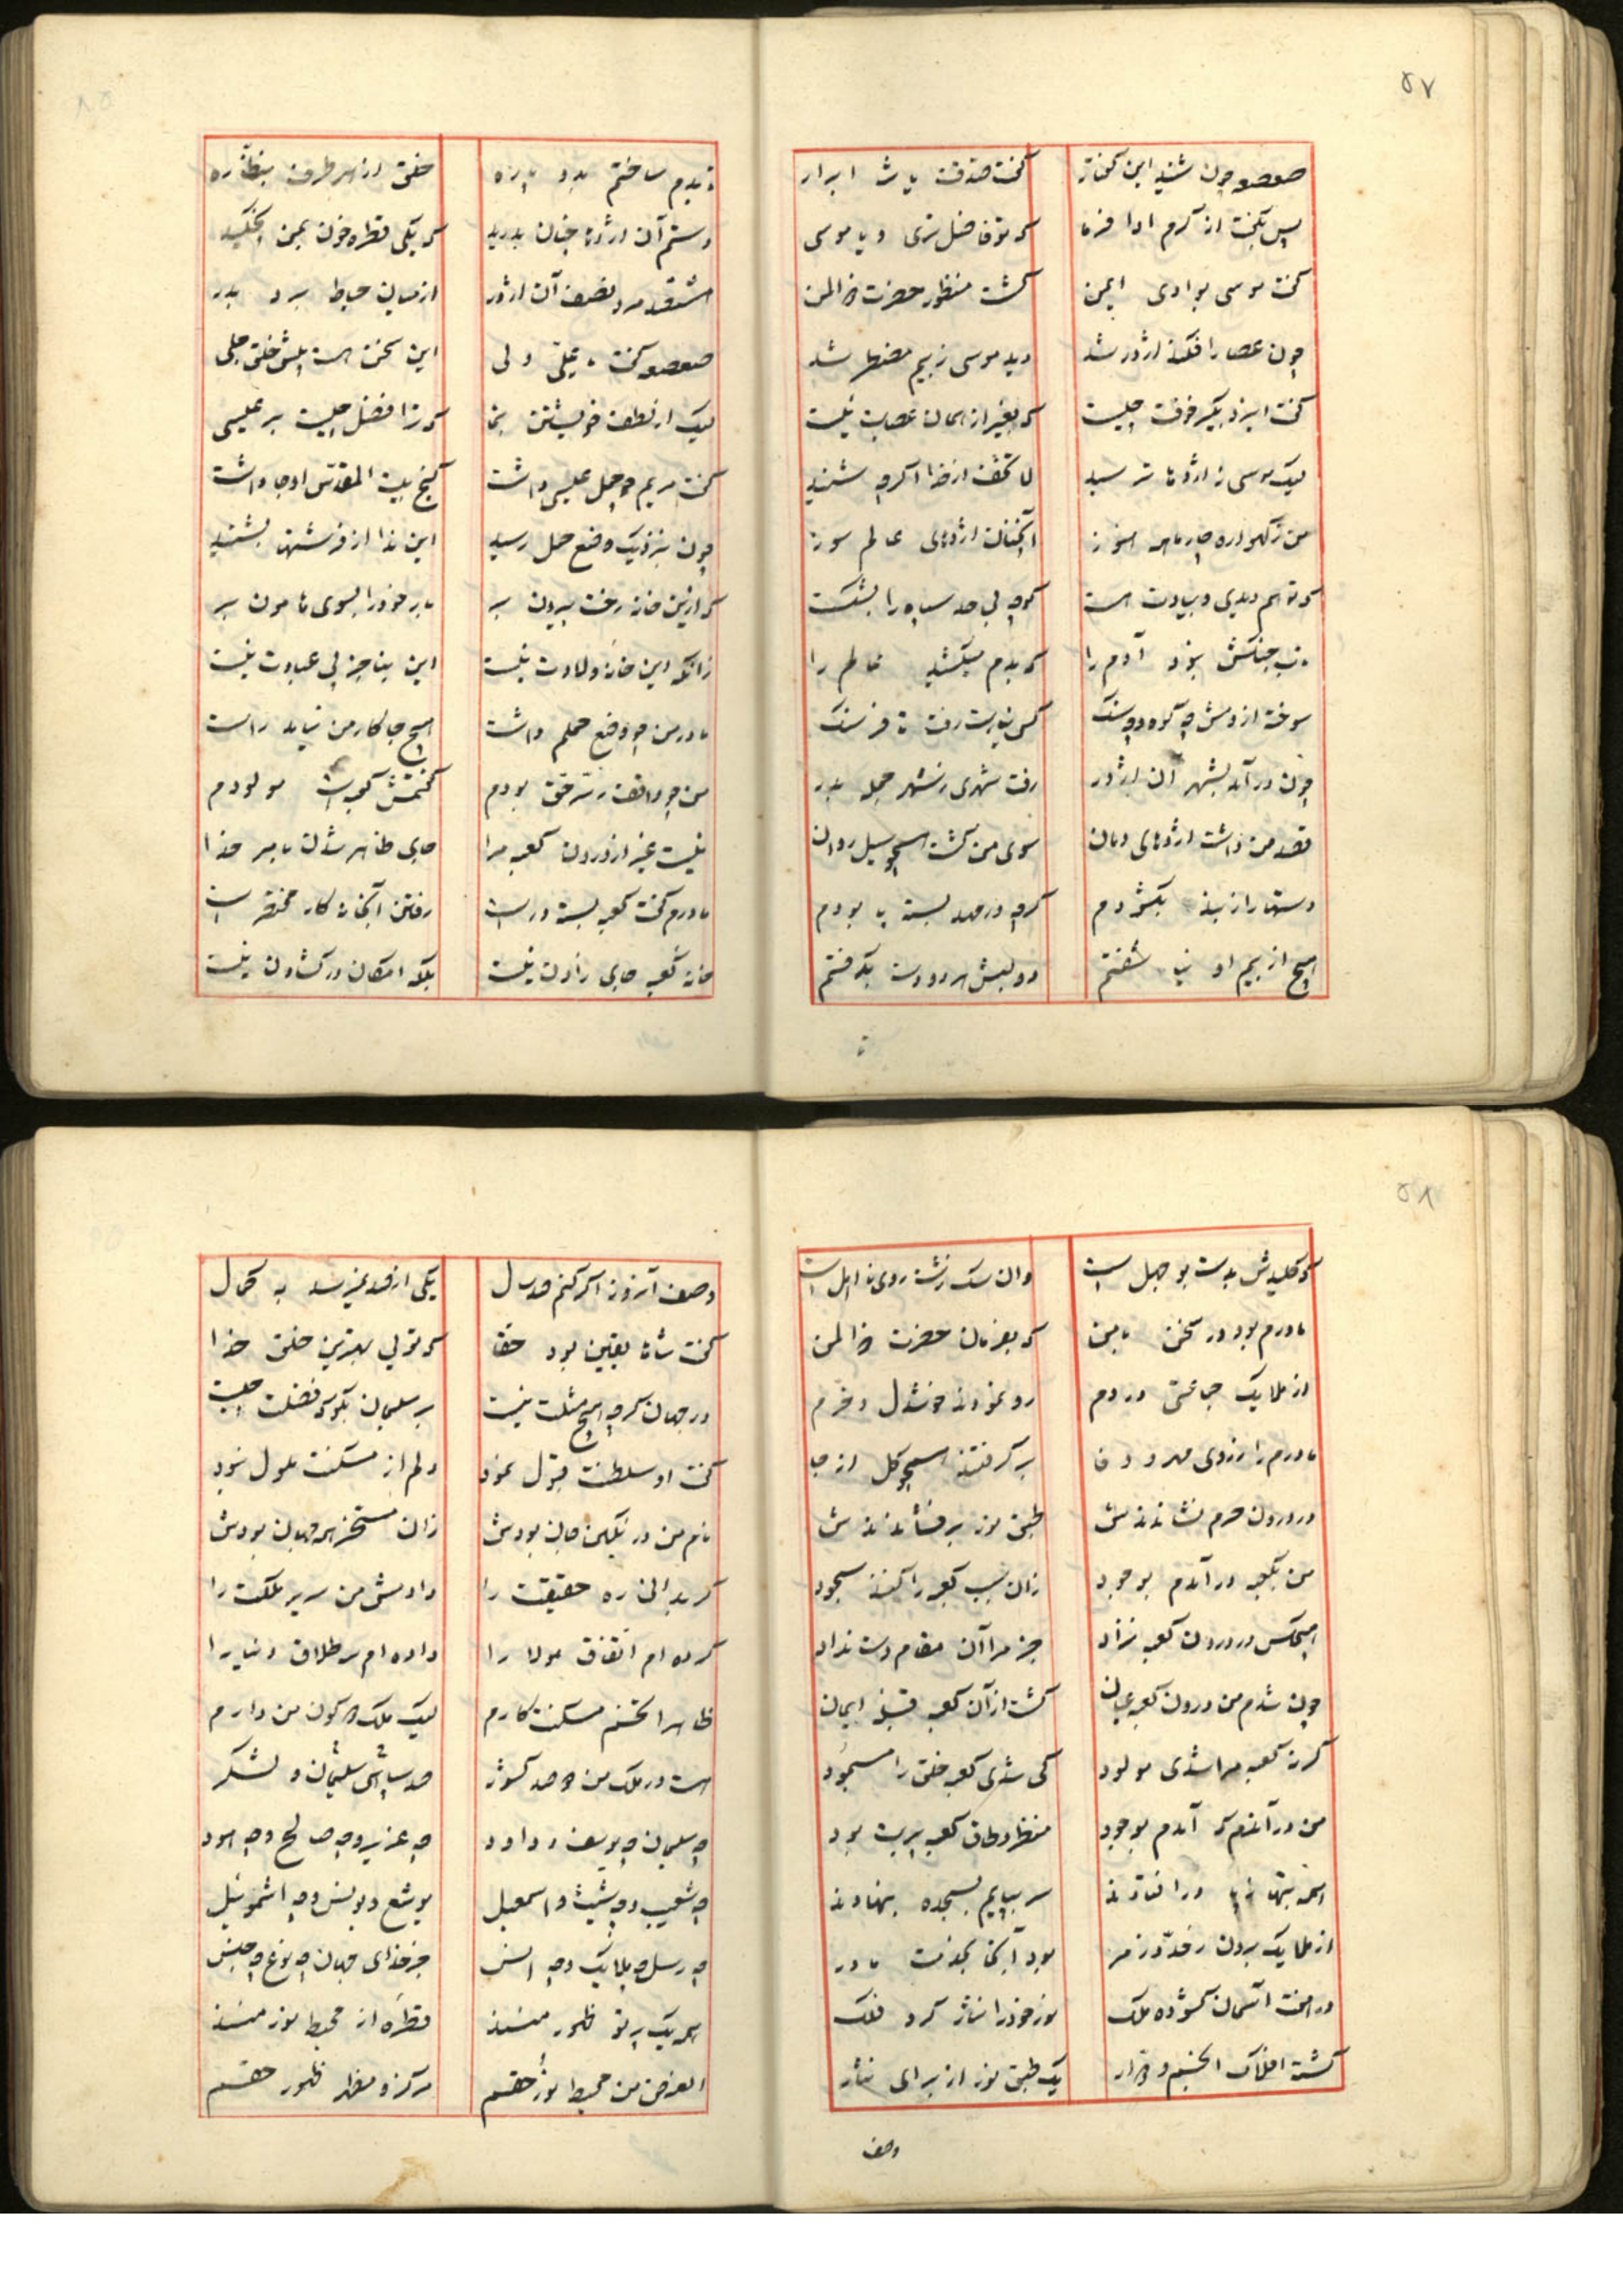 ۵۷
صعصعه چون شنید این گفتار
گفت صدقت یا شه ابرار
پس بگفت از کرم ادا فرما
که تو فاضل تری و یا موسی
گفت موسی بوادی ایمن
گشت منظور حضرت ذالمن
چون عصا را فکند اژدر شد
دید موسی ز بیم مضطر شد
گفت ایزد بگیر خوفت چیست
که بغیر از همان عصایت نیست
لیک موسی ز اژدها ترسید
لا تخف از خدا اگرچه شنید
من ز گهواره چار ماهه هنوز
آنچنان اژدهای عالم سوز
که تو هم دیدی و بیادت هست
کوچه بی حد سپاه را بشکست
تاب جنگش نبود آدم را
که بدم میکشید عالم را
سوخته از دمش چه کوه و چه سنگ
کس نیارست رفت تا فرسنگ
چون در آمد بشهر آن اژدر
رفت شهری ز شهر جمله بدر
قصد من داشت اژدهای دمان
سوی من گشت همچو سیل روان
دستها را ز بند بگشودم
گرچه در مهد بسته پا بودم
هیچ از بیم او نیاشفتم
دو لبش هر دو دست بگرفتم
تا
تا بدم ساختم بدو پاره
خلق از هر طرف بنظاره
دستم آن اژدها چنان بدرید
که یکی قطره خون بمن نچکید
هشتصد مرد نصف آن اژدر
از میان حیاط برد بدر
صعصعه گفت یا علی ولی
این سخن هست پیش خلق جلی
لیک از لطف خویشتن بنما
که ترا فضل چیست بر عیسی
گفت مریم چو حمل عیسی داشت
کنج بیت المقدس او جا داشت
چون بنزدیک وضع حمل رسید
این ندا از فرشته بشنید
که ازین خانه رخت بیرون بر
بار خود را بسوی هامون بر
زانکه این خانه ولادت نیست
این بنا جز پی عبادت نیست
مادر من چو وضع حملم داشت
هیچ جا کار من نیامد راست
من چو واقف ز سر حق بودم
گفتمش کعبه است مولودم
نیست غیر از درون کعبه مرا
جای ظاهر شدن بامر خدا
مادرم گفت کعبه بسته در است
رفتن آنجا نه کار مختصر است
خانه کعبه جای زادن نیست
بلکه امکان در گشادن نیست
۵۸
که کلیدش بدست بو جهل است
وان سگ زشت روی نا اهل است
مادرم بود در سخن با من
که بفرمان حضرت ذالمن
از ملایک جماعتی در دم
رو نمودند خوشدل و خرم
مادرم را ز روی مهر و وفا
بر گرفتند همچو گل از جا
در درون حرم نشاندندش
طبق نور بر فشاندندش
من بکعبه در آمدم بوجود
زان سبب کعبه را کنند سجود
هیچکس در درون کعبه نزاد
جز مرا آن مقام دست نداد
چون شدم من درون کعبه عیان
گشت از آن کعبه قبله ایمان
گر نه کعبه مرا شدی مولود
کی شدی کعبه خلق را مسجود
من در آندم که آمدم بوجود
منظر و طاق کعبه پر بت بود
همه بتها ز پا در افتادند
سر بپایم بسجده بنهادند
از ملایک برون ز حد و ز مر
بود آنجا بخدمت مادر
در هفت آسمان گشوده ملک
نور خود را نثار کرد فلک
گشته افلاک انجم و
یک طبق نور از برای نثار
وصف
وصف آنروز اگر کنم صد سال
یکی از صد نمیرسد به کمال
گفت شاها یقین بود حقا
که توئی بهترین خلق خدا
در جهان گرچه هیچ مثلت نیست
بر سلیمان بگو که فضلت چیست
گفت او سلطنت قبول نمود
دلم از مسکنت ملول نبود
نام من در نگین جان بودش
زان مسخر همه جهان بودش
گر بدانی ره حقیقت را
دادمش من سریر ملکت را
کرده ام اتفاق مولا را
داده ام سر طلاق دنیا را
ظاهرا تخم مسکنت کارم
لیک ملک دو کون من دارم
هست در ملک من دو صد کشور
صد سپاهی سلیمان و لشکر
چه سلیمان چه یوسف و داود
چه عزیر و چه صالح و چه هود
چه شعیب و چه شیث و اسمعیل
یوشع و یونس و چه اشموئیل
چه رسل چه ملایک و چه انس
جز خدای جهان چه نوع چه جنس
همه یک پرتو ظهور منند
قطره از محیط نور منند
الغرض من محیط نور حقم
مرکز و مظهر ظهور حقم